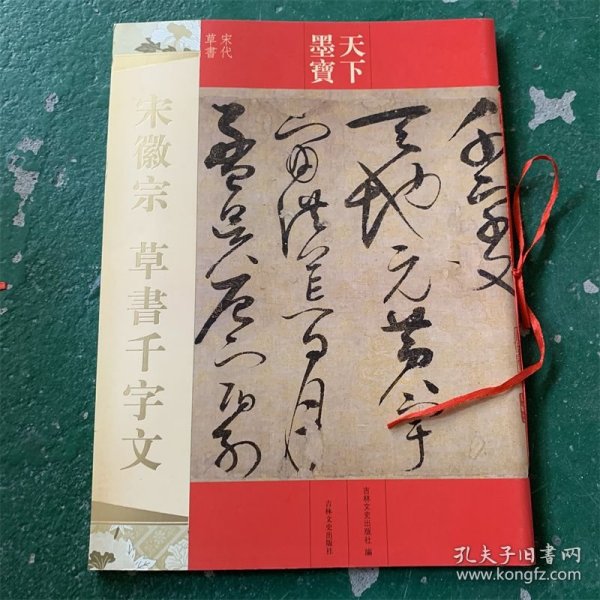 天下
墨寶
宋代
草書
宋徽宗 草書千字文
千字文
天地元黄宇
宙洪荒日月
盈昃辰宿列
吉林文史出版社 編
吉林文史出版社
孔夫子旧书网
www.kongfz.com